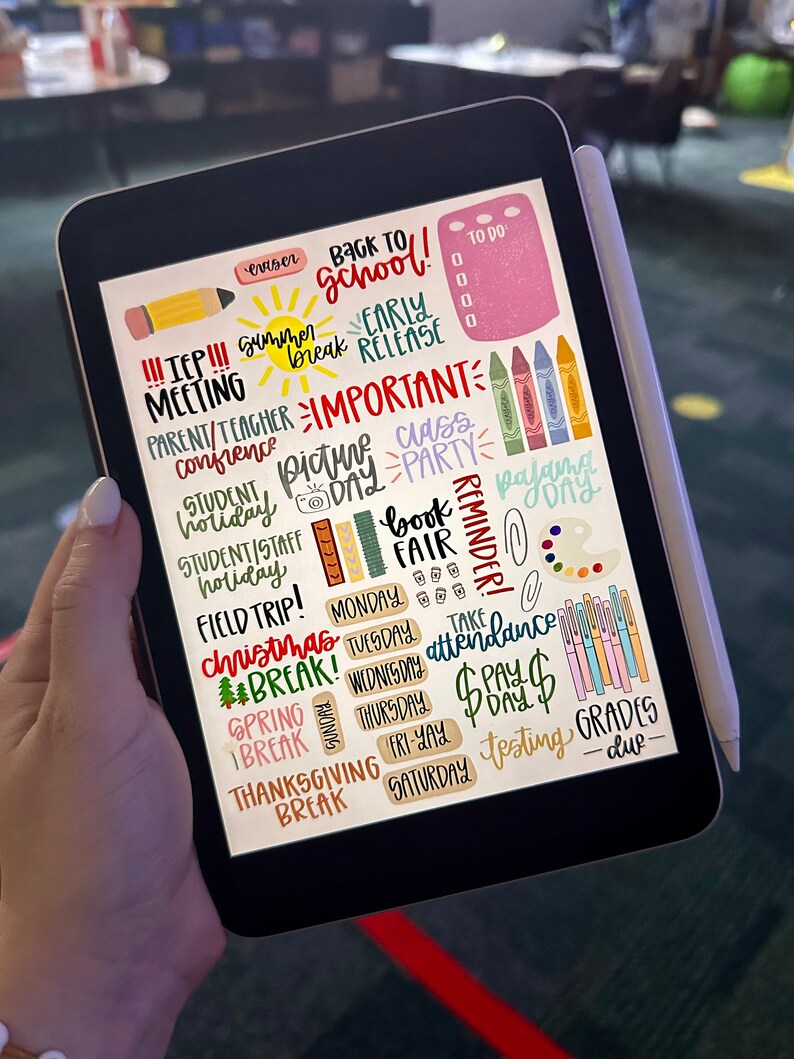 eraser
BACK TO
School!
TO DO:
summer
break
EARLY
RELEASE
!!! IEP !!!
MEETING
IMPORTANT
PARENT/TEACHER
confrence
picture
DAY
class
PARTY
pajama
DAY
STUDENT
holiday
book
FAIR
REMINDER!
STUDENT/STAFF
holiday
FIELD TRIP!
MONDAY
TAKE
attendance
christmas
BREAK!
TUESDAY
WEDNESDAY
$ PAY $
DAY
SPRING
BREAK
SUNDAY
THURSDAY
FRI-YAY
testing
GRADES
due
THANKSGIVING
BREAK
SATURDAY